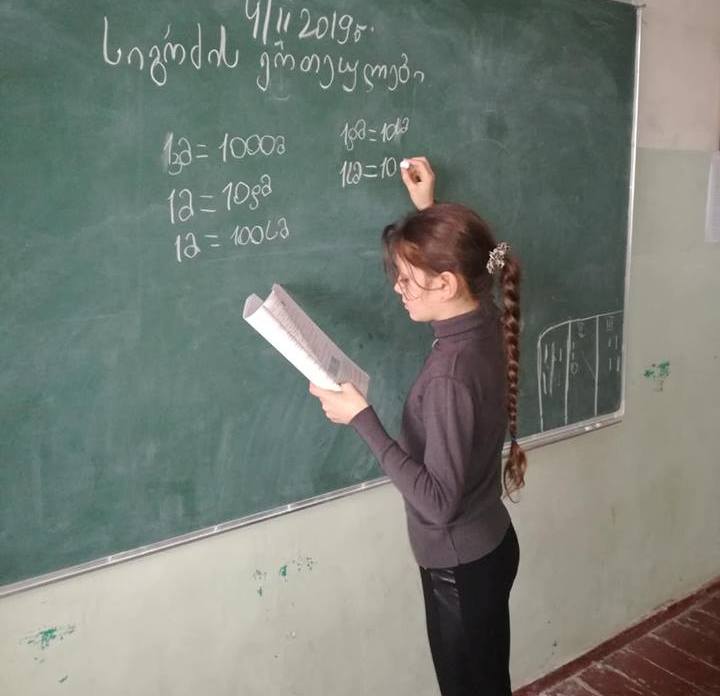 4/II 2019წ.
სიგრძის ერთეულები
1კმ = 1000მ
1მ = 10დმ
1მ = 100სმ
1დმ = 10სმ
1სმ = 10